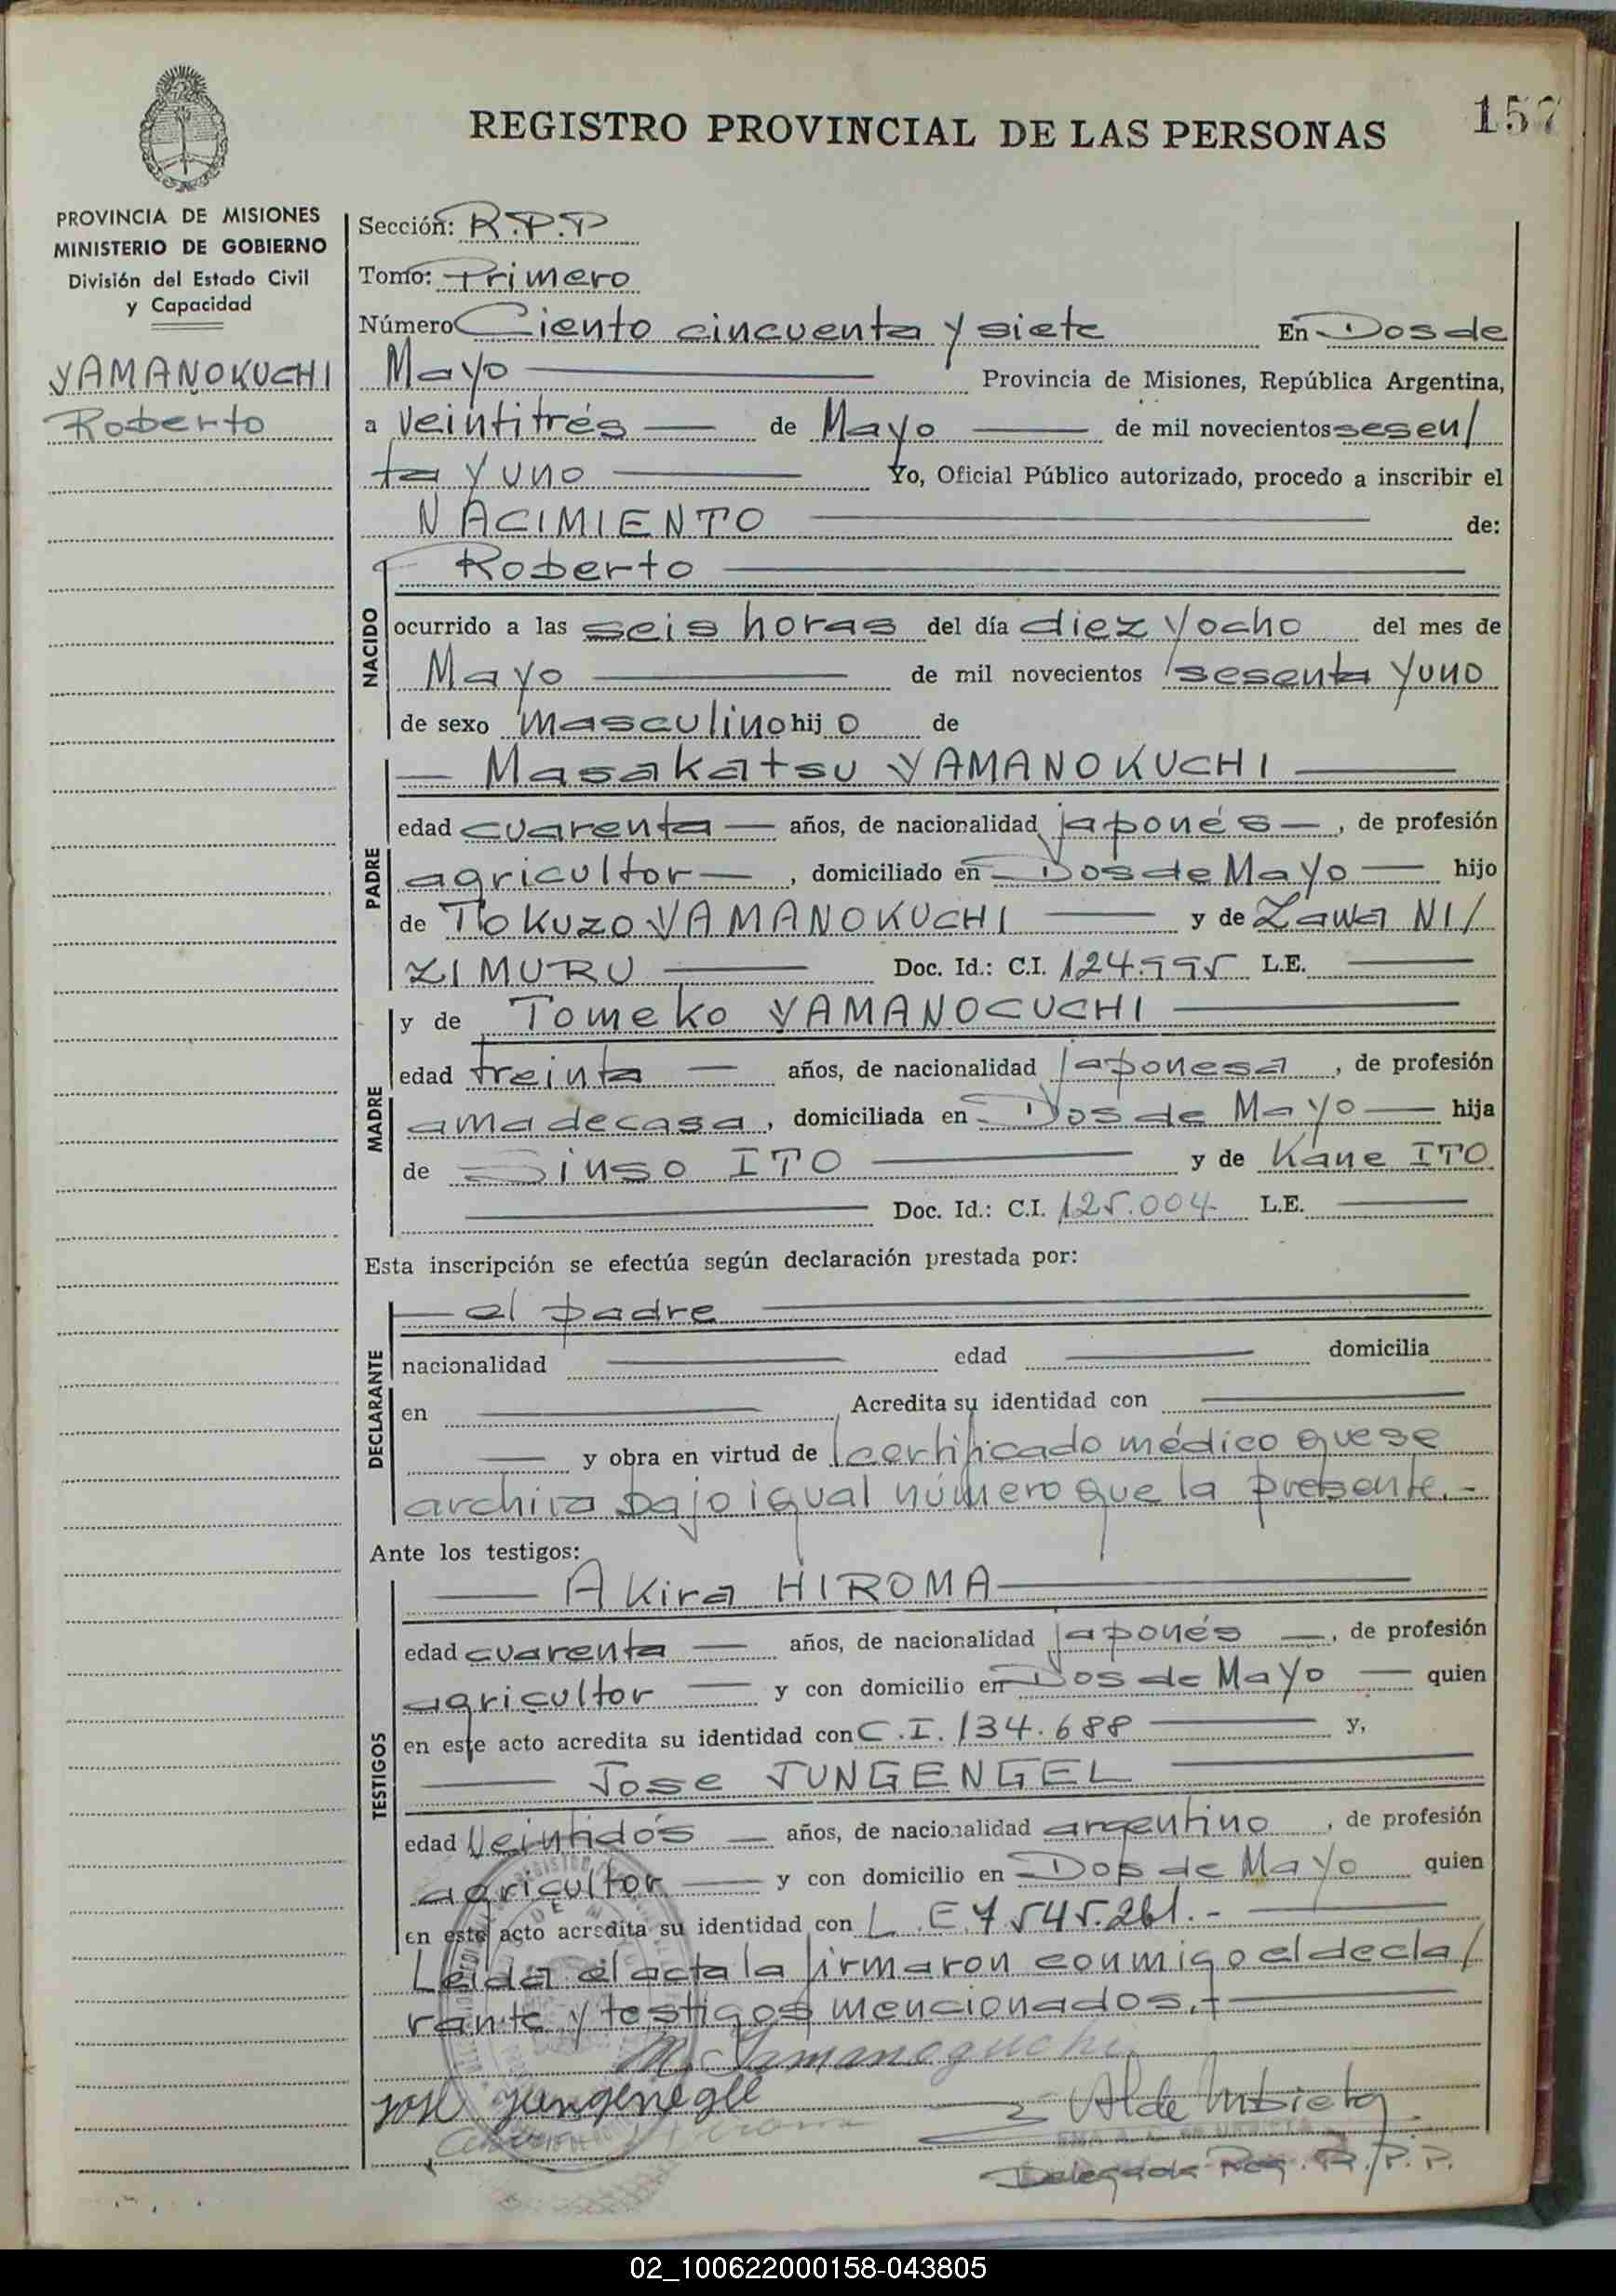 REGISTRO PROVINCIAL DE LAS PERSONAS
157
PROVINCIA DE MISIONES
MINISTERIO DE GOBIERNO
División del Estado Civil
y Capacidad
YAMANOKUCHI
Roberto
Sección: R.P.P
Tomo: Primero
Número Ciento cincuenta y siete En Dos de
Mayo Provincia de Misiones, República Argentina,
a veintitrés de Mayo de mil novecientos sesen/
ta y uno Yo, Oficial Público autorizado, procedo a inscribir el
NACIMIENTO de:
NACIDO
Roberto
ocurrido a las seis horas del día diez y ocho del mes de
Mayo de mil novecientos sesenta y uno
de sexo masculino hij o de
PADRE
Masakatsu YAMANOKUCHI
edad cuarenta años, de nacionalidad japonés, de profesión
agricultor, domiciliado en Dos de Mayo hijo
de Tokuzo YAMANOKUCHI y de Zawa NI/
ZIMURU Doc. Id.: C.I. 124.995 L.E.
MADRE
y de Tomeko YAMANOCUCHI
edad treinta años, de nacionalidad japonesa, de profesión
ama de casa, domiciliada en Dos de Mayo hija
de Sinso ITO y de Kane ITO
Doc. Id.: C.I. 125.004 L.E.
Esta inscripción se efectúa según declaración prestada por:
DECLARANTE
el padre
nacionalidad edad domicilia
en Acredita su identidad con
y obra en virtud de certificado médico que se
archiva bajo igual número que la presente.-
Ante los testigos:
TESTIGOS
Akira HIROMA
edad cuarenta años, de nacionalidad japonés, de profesión
agricultor y con domicilio en Dos de Mayo quien
en este acto acredita su identidad con C.I. 134.688 y,
Jose JUNGENGEL
edad veintidós años, de nacionalidad argentino, de profesión
agricultor y con domicilio en Dos de Mayo quien
en este acto acredita su identidad con L.E. 7.545.261.-
Leída el acta la firmaron conmigo el decla/
rante y testigos mencionados.-
M. Yamanoguchi
Jose Jungenegel
Delegada Reg. R.P.P.
02_100622000158-043805